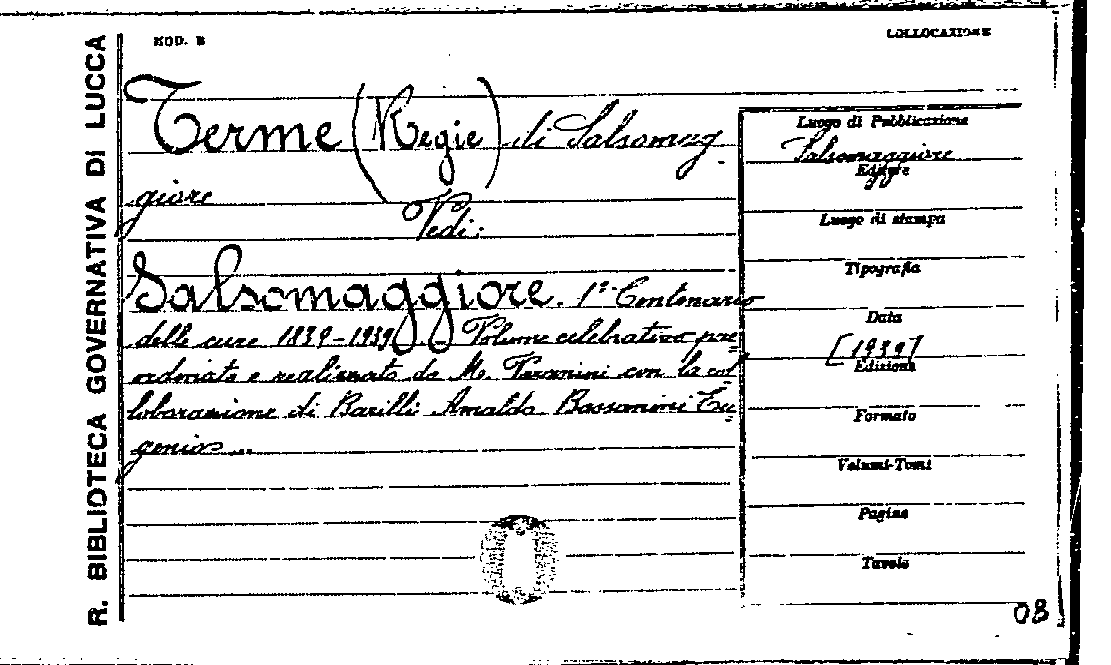 R. BIBLIOTECA GOVERNATIVA DI LUCCA
MOD. B
COLLOCAZIONE
Terme (Regie) di Salsomag
giore
Vedi:
Salsomaggiore. 1° Centenario
delle cure 1839-1939. Volume celebrativo pre
ordinato e realizzato da M. Taranini con la col
laborazione di Barilli Arnaldo Bassanini Eu
genio ..
Luogo di Pubblicazione
Salsomaggiore
Editore
Luogo di stampa
Tipografia
Data
[1939]
Edizione
Formato
Volumi-Tomi
Pagine
Tavole
08